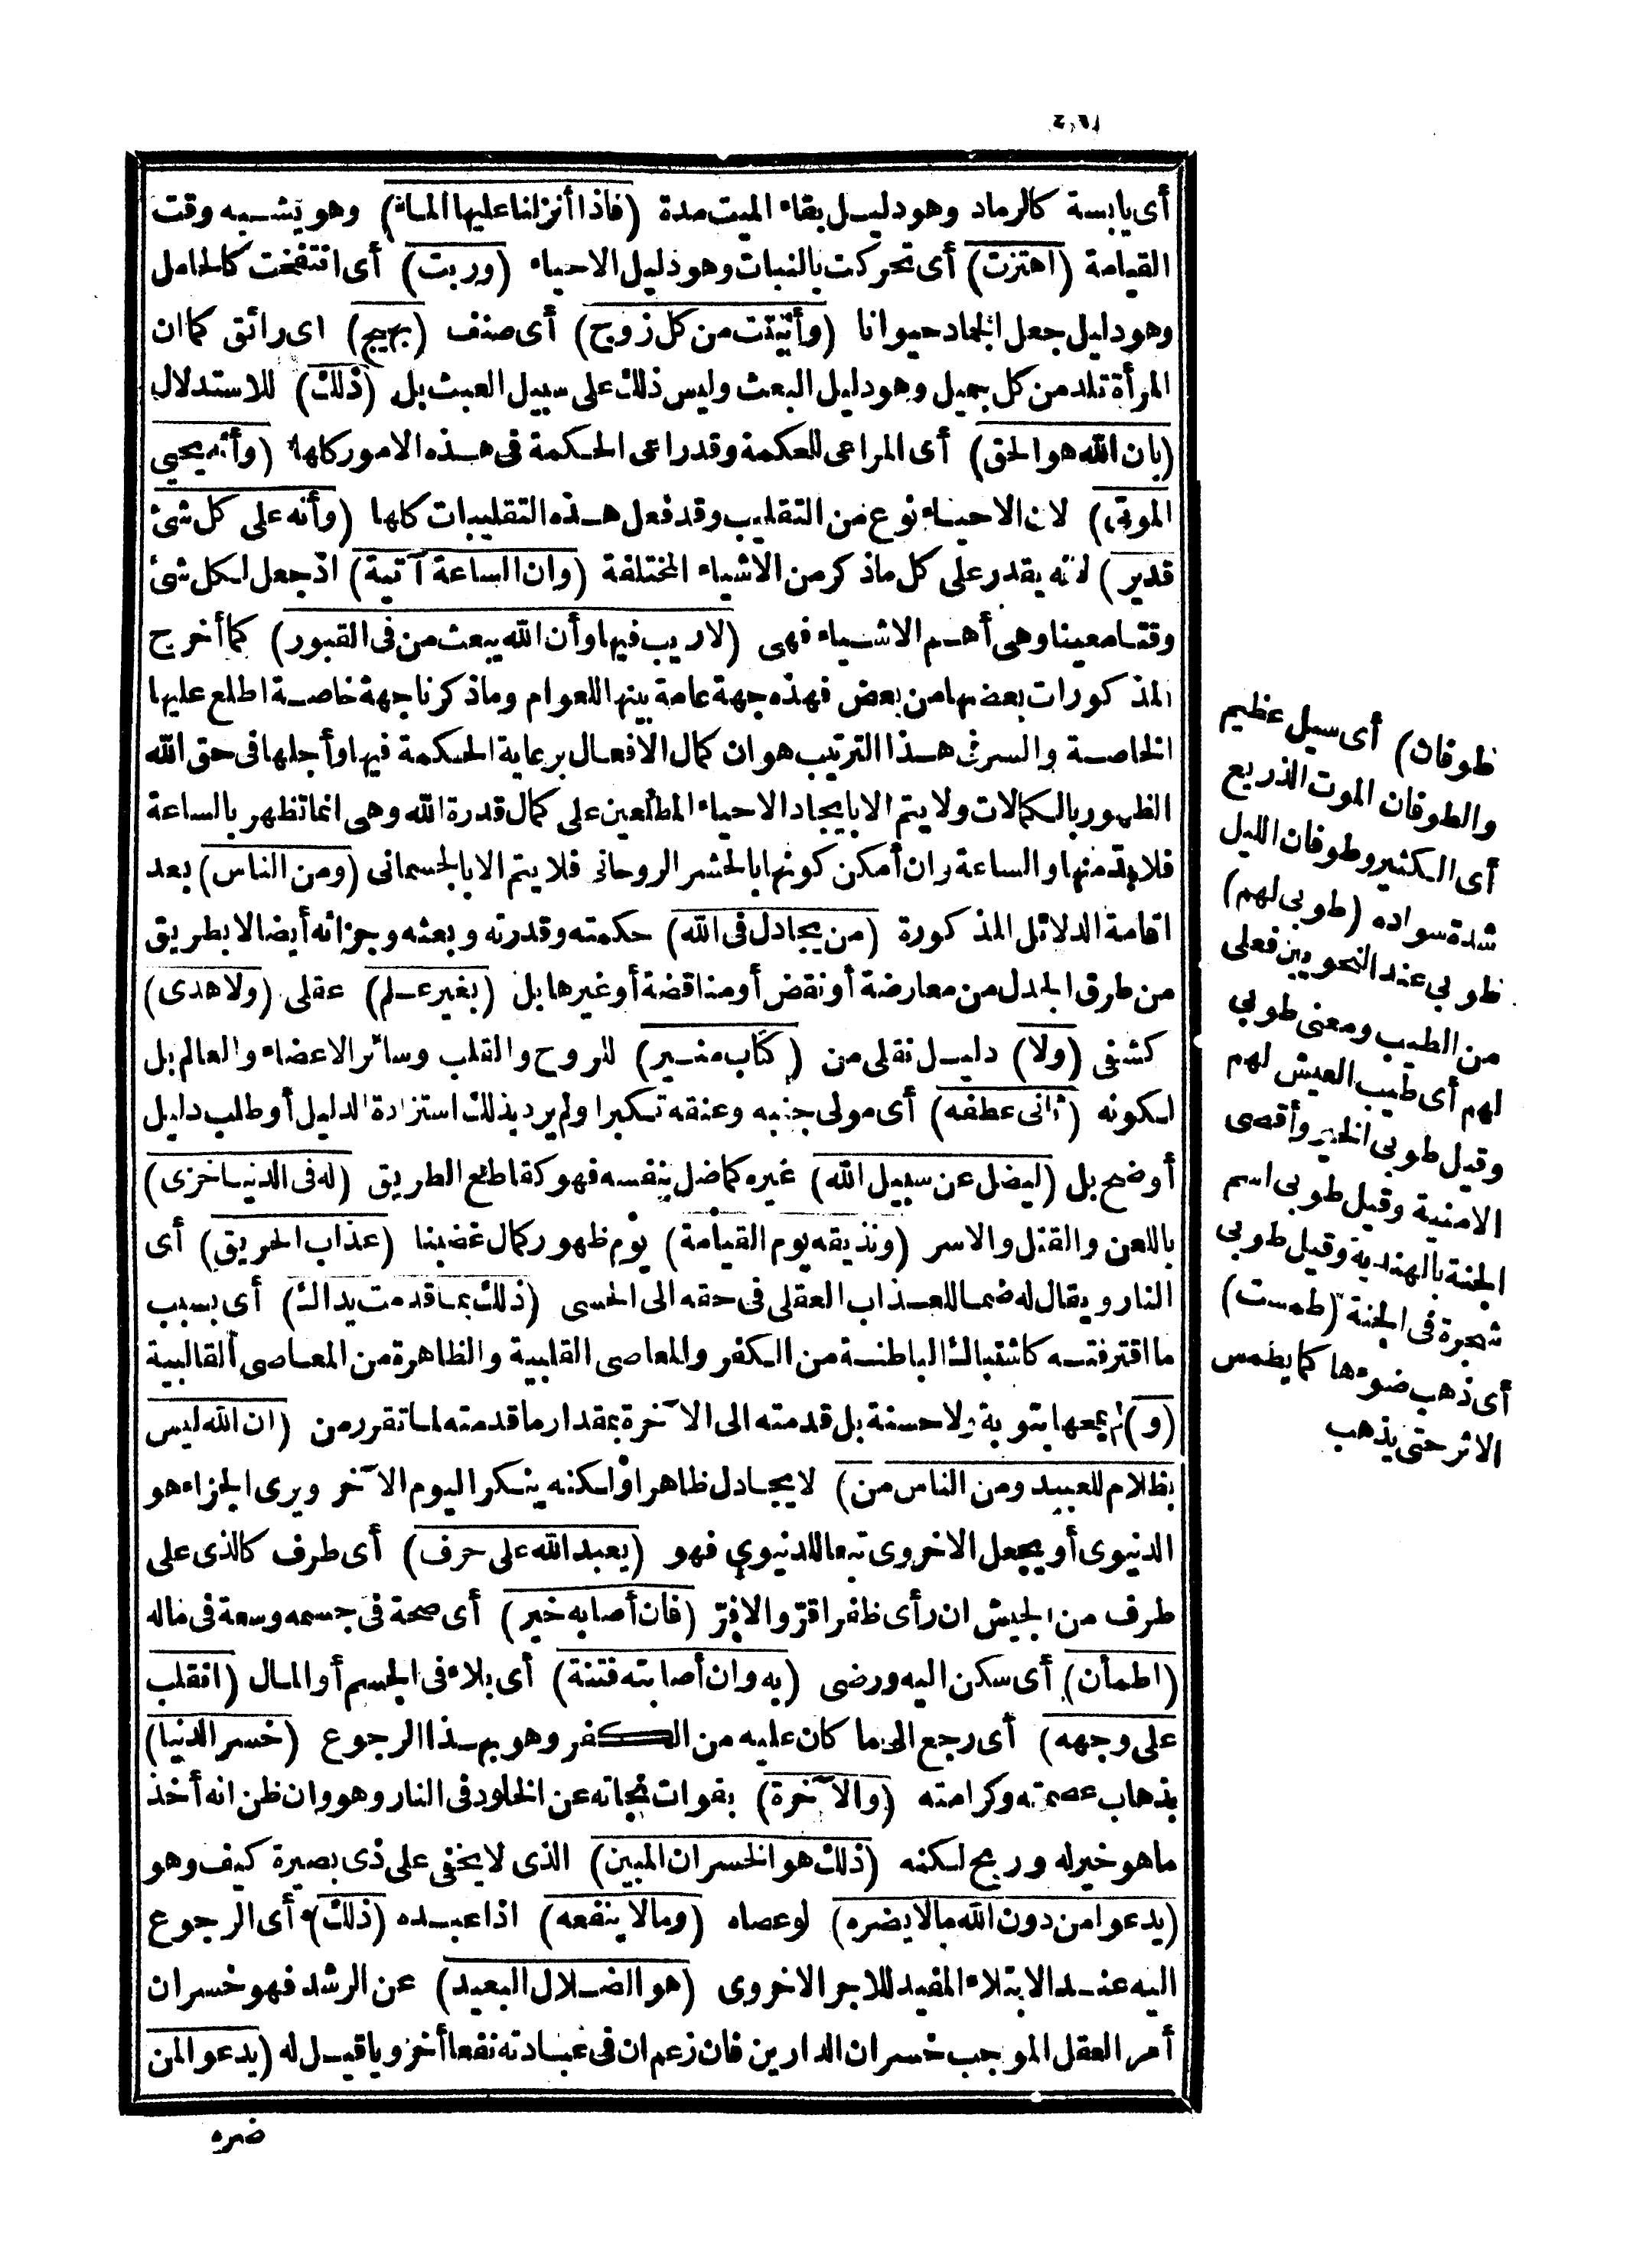 أى يابسة كالرماد وهو دليل بقاء الميت مدة (فاذا أنزلنا عليها الماء) وهو يشبه وقت
القيامة (اهتزت) أى تحركت بالنبات وهو دليل الاحياء (وربت) أى انتفخت كالحامل
وهو دليل جعل الجماد حيوانا (وأنبتت من كل زوج) أى صنف (بهيج) اى رائق كما ان
المرأة تلد من كل جميل وهو دليل البعث وليس ذلك على سبيل العبث بل (ذلك) للاستدلال
(بان الله هو الحق) أى المراعى للحكمة وقد راعى الحكمة فى هذه الامور كلها (وأنه يحيي
الموتى) لان الاحياء نوع من التقليب وقد فعل هذه التقليبات كلها (وأنه على كل شئ
قدير) لانه يقدر على كل ما ذكر من الاشياء المختلفة (وان الساعة آتية) اذ جعل لكل شئ
وقتا معينا وهى أهم الاشياء فهى (لا ريب فيها وأن الله يبعث من فى القبور) كما أخرج
المذكورات بعضها من بعض فهذه جهة عامة بينها للعوام وما ذكرنا جهة خاصة اطلع عليها
الخاصة والسر فى هذا الترتيب هو ان كمال الافعال برعاية الحكمة فيها وأجلها فى حق الله
الظهور بالكمالات ولا يتم الا بايجاد الاحياء المطلعين على كمال قدرة الله وهى انما تظهر بالساعة
فلا بد منها والساعة وان أمكن كونها بالحشر الروحانى فلا يتم الا بالجسمانى (ومن الناس) بعد
اقامة الدلائل المذكورة (من يجادل فى الله) حكمته وقدرته وبعثه وجزائه أيضا لا بطريق
من طرق الجدل من معارضة أو نقض أو مناقضة أو غيرها بل (بغير علم) عقلى (ولا هدى)
كشفى (ولا) دليل نقلى من (كتاب منير) للروح والقلب وسائر الاعضاء والعالم بل
لكونه (ثانى عطفه) أى مولى جنبه وعنقه تكبرا ولم يرد بذلك استزادة الدليل أو طلب دليل
أوضح بل (ليضل عن سبيل الله) غيره كما ضل بنفسه فهو كقاطع الطريق (له فى الدنيا خزى)
باللعن والقتل والاسر (ونذيقه يوم القيامة) يوم ظهور كمال غضبنا (عذاب الحريق) أى
النار ويقال له ضما للعذاب العقلى فى حقه الى الحسى (ذلك بما قدمت يداك) أى بسبب
ما اقترفته كاشتباك الباطنة من الكفر والمعاصى القلبية والظاهرة من المعاصى القالبية
(و) لم يمحها بتوبة ولا حسنة بل قدمته الى الآخرة بمقدار ما قدمته لما تقرر من (ان الله ليس
بظلام للعبيد ومن الناس من) لا يجادل ظاهرا ولكنه ينكر اليوم الآخر ويرى الجزاء هو
الدنيوى أو يجعل الاخروى تبعا للدنيوى فهو (يعبد الله على حرف) أى طرف كالذى على
طرف من الجيش ان رأى ظفرا قر والا فر (فان أصابه خير) أى صحة فى جسمه وسعة فى ماله
(اطمأن) أى سكن اليه ورضى (به وان أصابته فتنة) أى بلاء فى الجسم أو المال (انقلب
على وجهه) أى رجع الى ما كان عليه من الكفر وهو بهذا الرجوع (خسر الدنيا)
بذهاب عصمته وكرامته (والآخرة) بفوات نجاته عن الخلود فى النار وهو وان ظن انه أخذ
ما هو خير له وربح لكنه (ذلك هو الخسران المبين) الذى لا يخفى على ذى بصيرة كيف وهو
(يدعوا من دون الله ما لا يضره) لو عصاه (وما لا ينفعه) اذا عبده (ذلك) أى الرجوع
اليه عند الابتلاء المفيد للاجر الاخروى (هو الضلال البعيد) عن الرشد فهو خسران
أمر العقل الموجب خسران الدارين فان زعم ان فى عبادته نفعا أخرويا قيل له (يدعو المن
ضره
طوفان) أى سيل عظيم
والطوفان الموت الذريع
أى الكثير وطوفان الليل
شدة سواده (طوبى لهم)
طوبى عند النحويين فعلى
من الطيب ومعنى طوبى
لهم أى طيب العيش لهم
وقيل طوبى الخير وأقصى
الامنية وقيل طوبى اسم
الجنة بالهندية وقيل طوبى
شجرة فى الجنة (طمست)
أى ذهب ضوءها كما يطمس
الاثر حتى يذهب